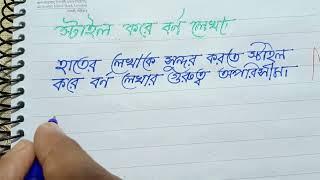 স্টাইল করে বর্ন লেখা
হাতের লেখাকে সুন্দর করতে স্টাইল
করে বর্ন লেখার গুরুত্ব অপরিসীম।